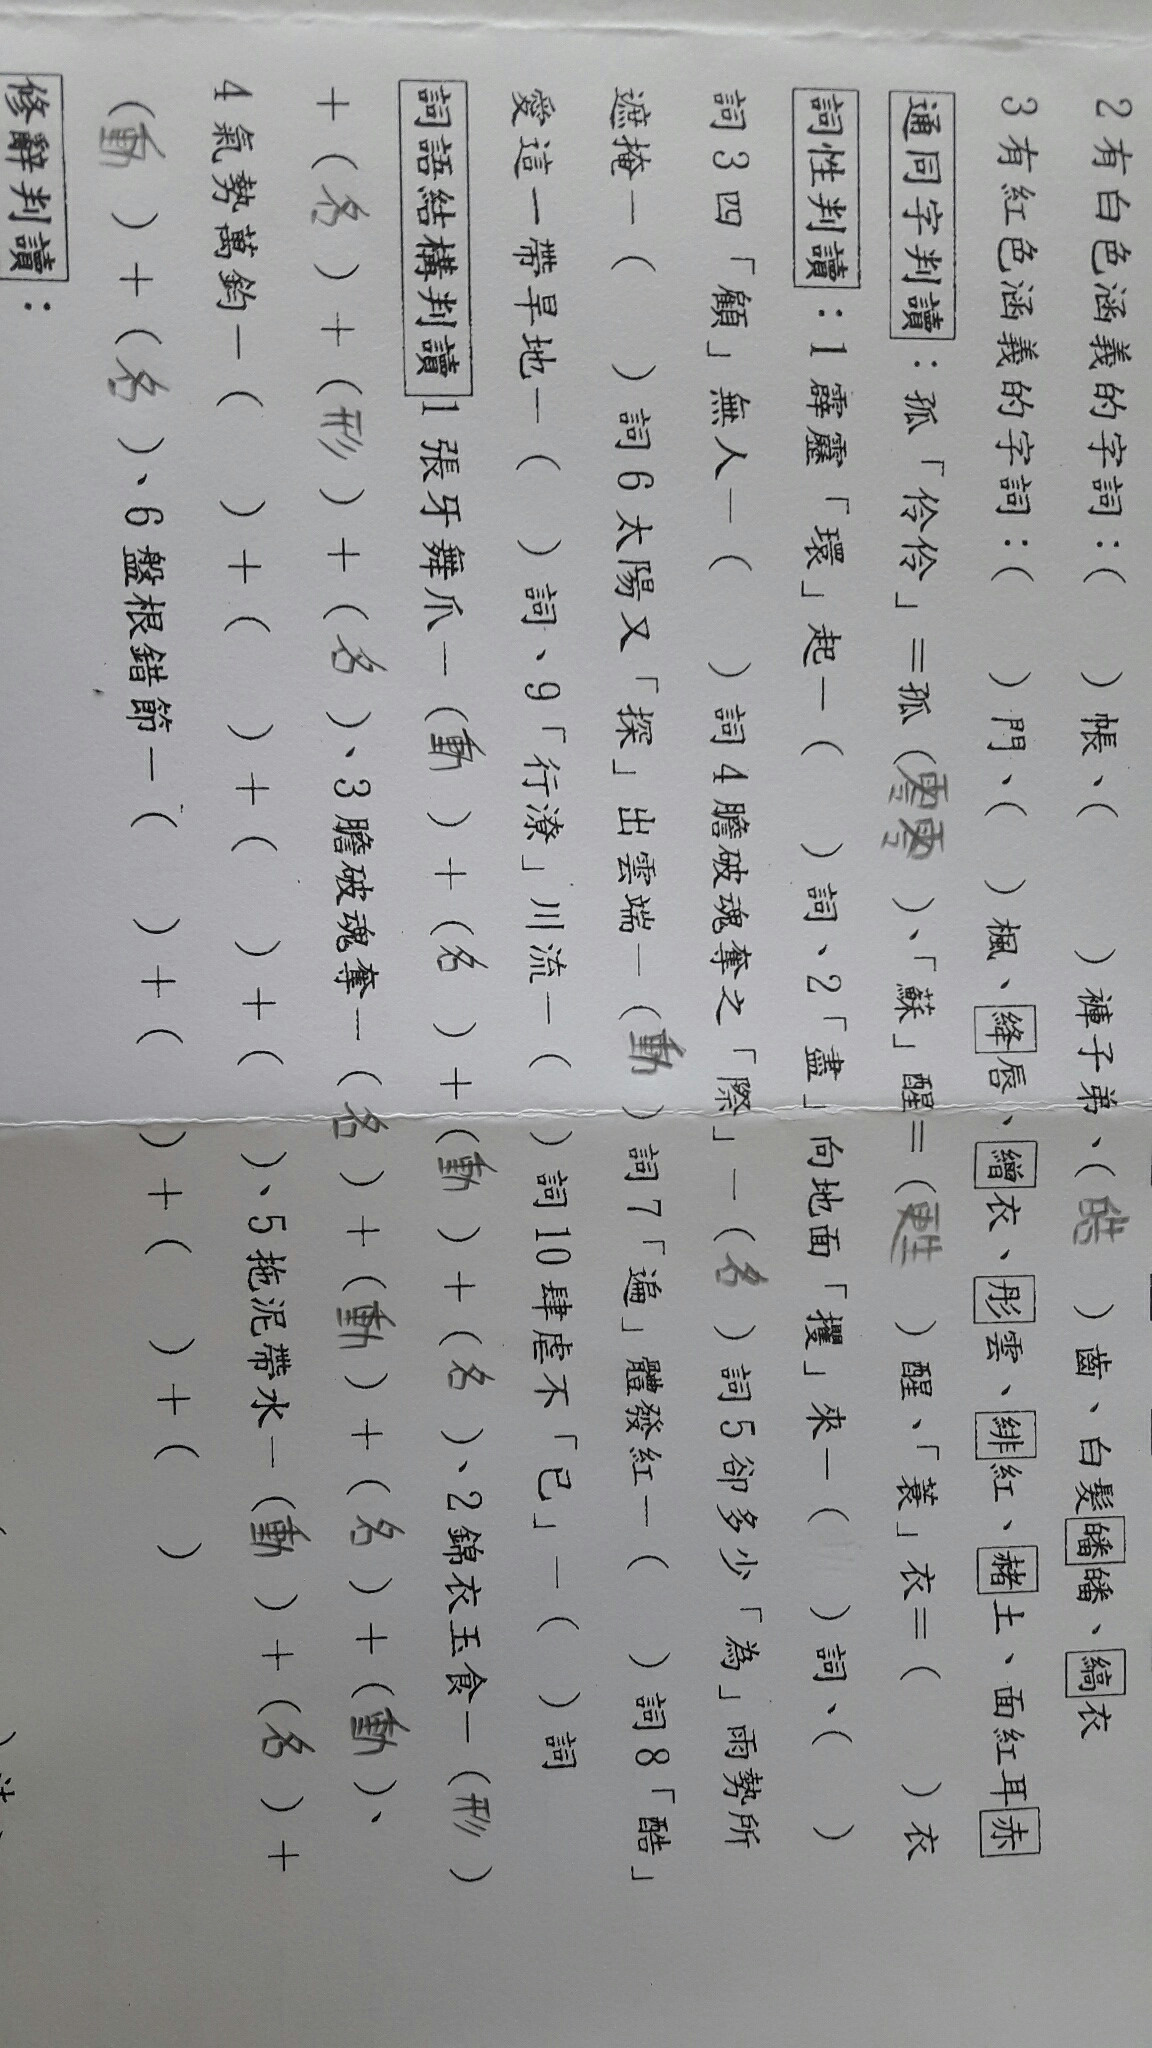 2有白色涵義的字詞：(　　)帳、(　　)褲子弟、(皓　)齒、白髮皤皤、縞衣
3有紅色涵義的字詞：(　　)門、(　　)楓、絳唇、繒衣、彤雲、緋紅、赭土、面紅耳赤
通同字判讀：孤「伶伶」＝孤(零零　)、「蘇」醒＝(甦　)醒、「蓑」衣＝(　　)衣
詞性判讀：1霹靂「環」起—(　　)詞、2「盡」向地面「攫」來—(　　)詞、(　　)
詞3四「顧」無人—(　　)詞4膽破魂奪之「際」—(名　)詞5卻多少「為」雨勢所
遮掩—(　　)詞6太陽又「探」出雲端—(動　)詞7「遍」體發紅—(　　)詞8「酷」
愛這一帶旱地—(　　)詞、9「行潦」川流—(　　)詞10肆虐不「已」—(　　)詞
詞語結構判讀1張牙舞爪—(動　)+(名　)+(動　)+(名　)、2錦衣玉食—(形)
+(名　)+(形　)+(名　)、3膽破魂奪—(名　)+(動　)+(名　)+(動　)、
4氣勢萬鈞—(　　)+(　　)+(　　)+(　　)、5拖泥帶水—(動　)+(名　)+
(動　)+(名　)、6盤根錯節—(　　)+(　　)+(　　)+(　　)
修辭判讀：